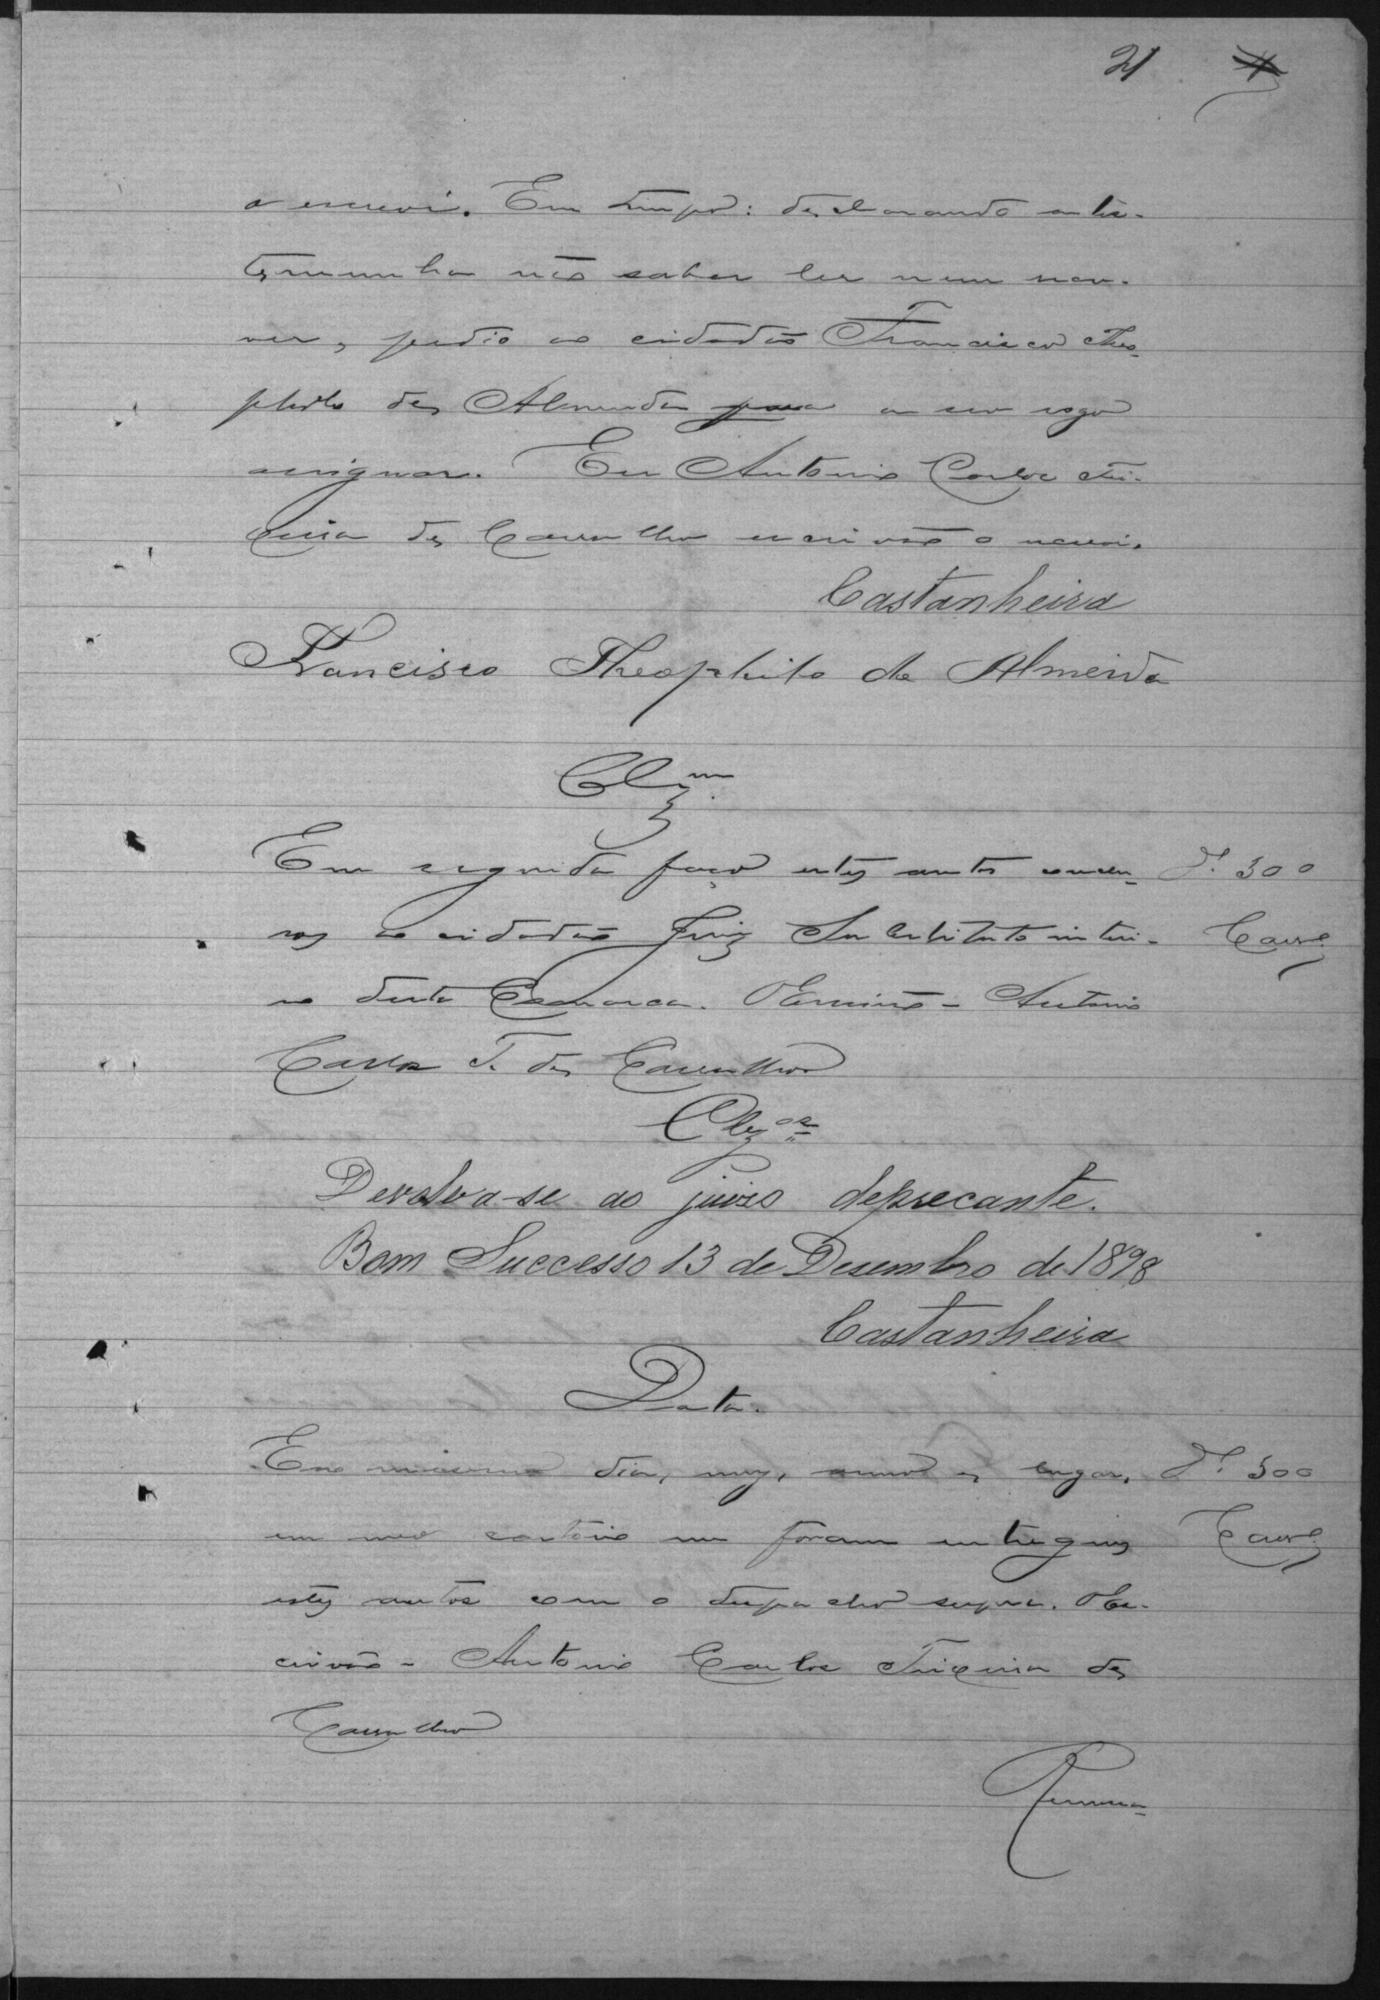 21
o escrevi. Em tempo: declarando a tes-
temunha não saber ler nem escre-
ver, pedio ao cidadão Francisco Theo-
philo de Almeida para a seu rogo
assignar. Eu Antonio Carlos Tei-
xeira de Carvalho escrivão o escrevi.
Castanheira
Francisco Theophilo de Almeida
Clzm
Em seguida faço estes autos conclu-
sos ao cidadão Juiz Substituto interi-
no desta Comarca. O Escrivão - Antonio
Carlos T. de Carvalho
D. 300
Carvº
Clzos
Devolva-se ao juizo deprecante.
Bom Successo 13 de Desembro de 1898
Castanheira
Data.
Em mesmo dia, mez, anno e lugar,
em meo cartorio me foram entregues
estes autos com o despacho supra. O Es-
crivão - Antonio Carlos Teixeira de
Carvalho
D. 300
Carvº
Remessa